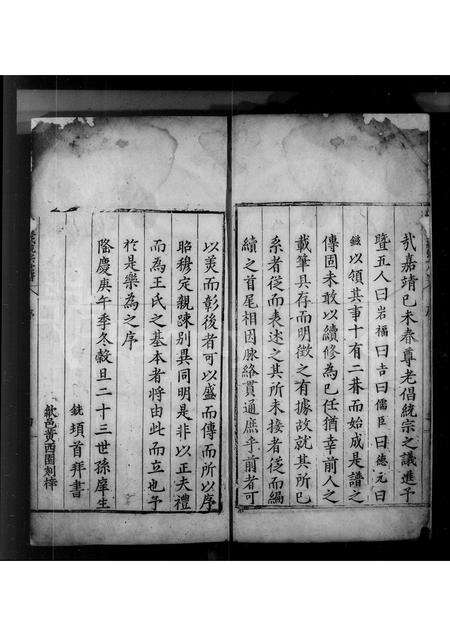 哉嘉靖己未春尊老倡統宗之議進予
暨五人曰岩福曰吉曰儒臣曰德元曰
鎡以領其事十有二碁而始成是譜之
傳固未敢以續修為己任猶幸前人之
載筆具存而明徵之有據故就其所已
系者從而表述之其所未接者從而編
續之首尾相因脉絡貫通庶乎前者可
以美而彰後者可以盛而傳而所以序
昭穆定親疎別異同明是非以正夫禮
而為王氏之基本者將由此而立也予
於是樂為之序
隆慶庚午季冬穀旦二十三世孫庠生
銑頊首拜書
歙邑黃西園刻梓